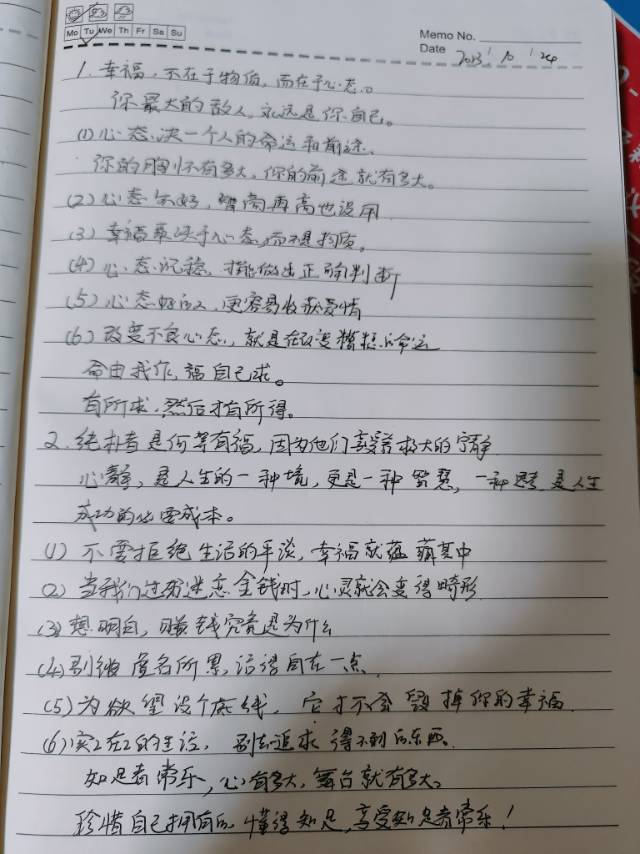 Mo Tu We Th Fr Sa Su
Memo No.
Date 2023 / 10 / 24
1. 幸福,不在于物值,而在于心态。
你最大的敌人,永远是你自己。
(1) 心态决一个人的命运和前途、
你的胸怀有多大,你的前途就有多大。
(2) 心态不好,智商再高也没用
(3) 幸福取决于心态,而不是物质。
(4) 心态沉稳,才能做出正确判断
(5) 心态好的人,更容易收获爱情
(6) 改变不良心态,就是在改变糟糕的命运
命由我作,福自己求。
有所求,然后才有所得。
2. 纯朴者是何等有福,因为他们享受着极大的宁静
心静,是人生的一种境,更是一种智慧,一种思考,是人生
成功的必要成本。
(1) 不要拒绝生活的平淡,幸福就蕴藏其中
(2) 当我们过分迷恋金钱时,心灵就会变得畸形
(3) 想明白,赚钱究竟是为什么
(4) 别被虚名所累,活得自在一点
(5) 为欲望设个底线,它才不会毁掉你的幸福
(6) 实实在在的生活,别去追求得不到的东西。
知足者常乐,心有多大,舞台就有多大。
珍惜自己拥有的,懂得知足,享受知足者常乐!